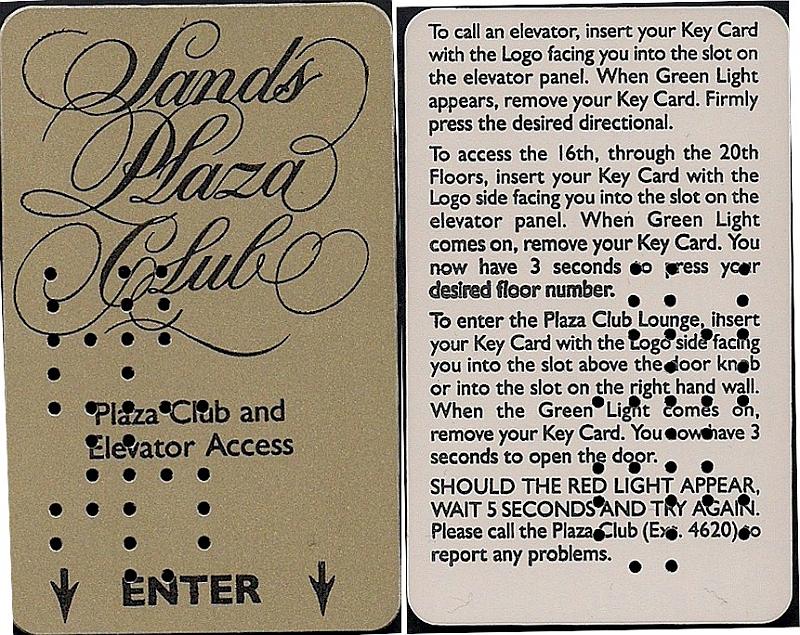 Sands
Plaza
Club
Plaza Club and
Elevator Access
ENTER
To call an elevator, insert your Key Card
with the Logo facing you into the slot on
the elevator panel. When Green Light
appears, remove your Key Card. Firmly
press the desired directional.
To access the 16th, through the 20th
Floors, insert your Key Card with the
Logo side facing you into the slot on the
elevator panel. When Green Light
comes on, remove your Key Card. You
now have 3 seconds to press your
desired floor number.
To enter the Plaza Club Lounge, insert
your Key Card with the Logo side facing
you into the slot above the door knob
or into the slot on the right hand wall.
When the Green Light comes on,
remove your Key Card. You now have 3
seconds to open the door.
SHOULD THE RED LIGHT APPEAR,
WAIT 5 SECONDS AND TRY AGAIN.
Please call the Plaza Club (Ext. 4620) to
report any problems.